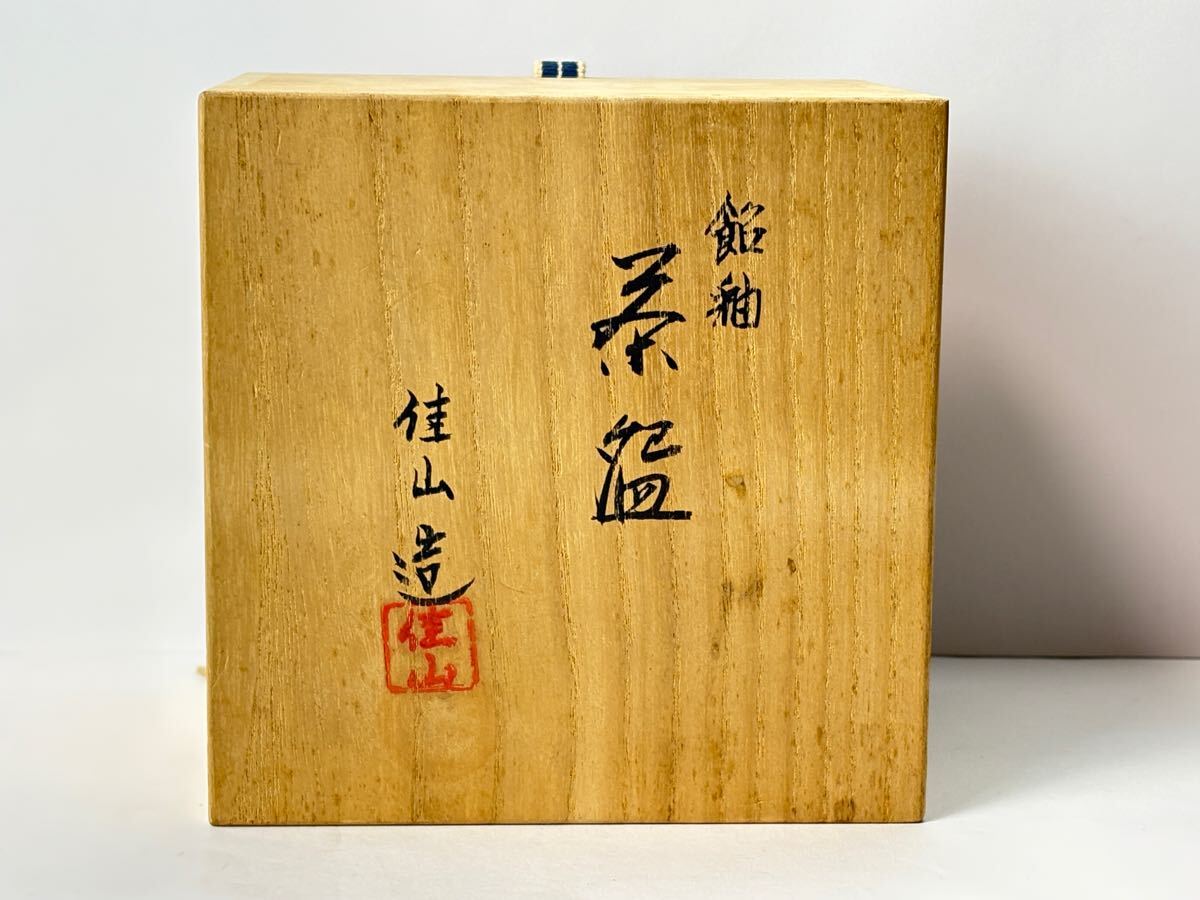 飴釉
茶盌
佳山造
佳山